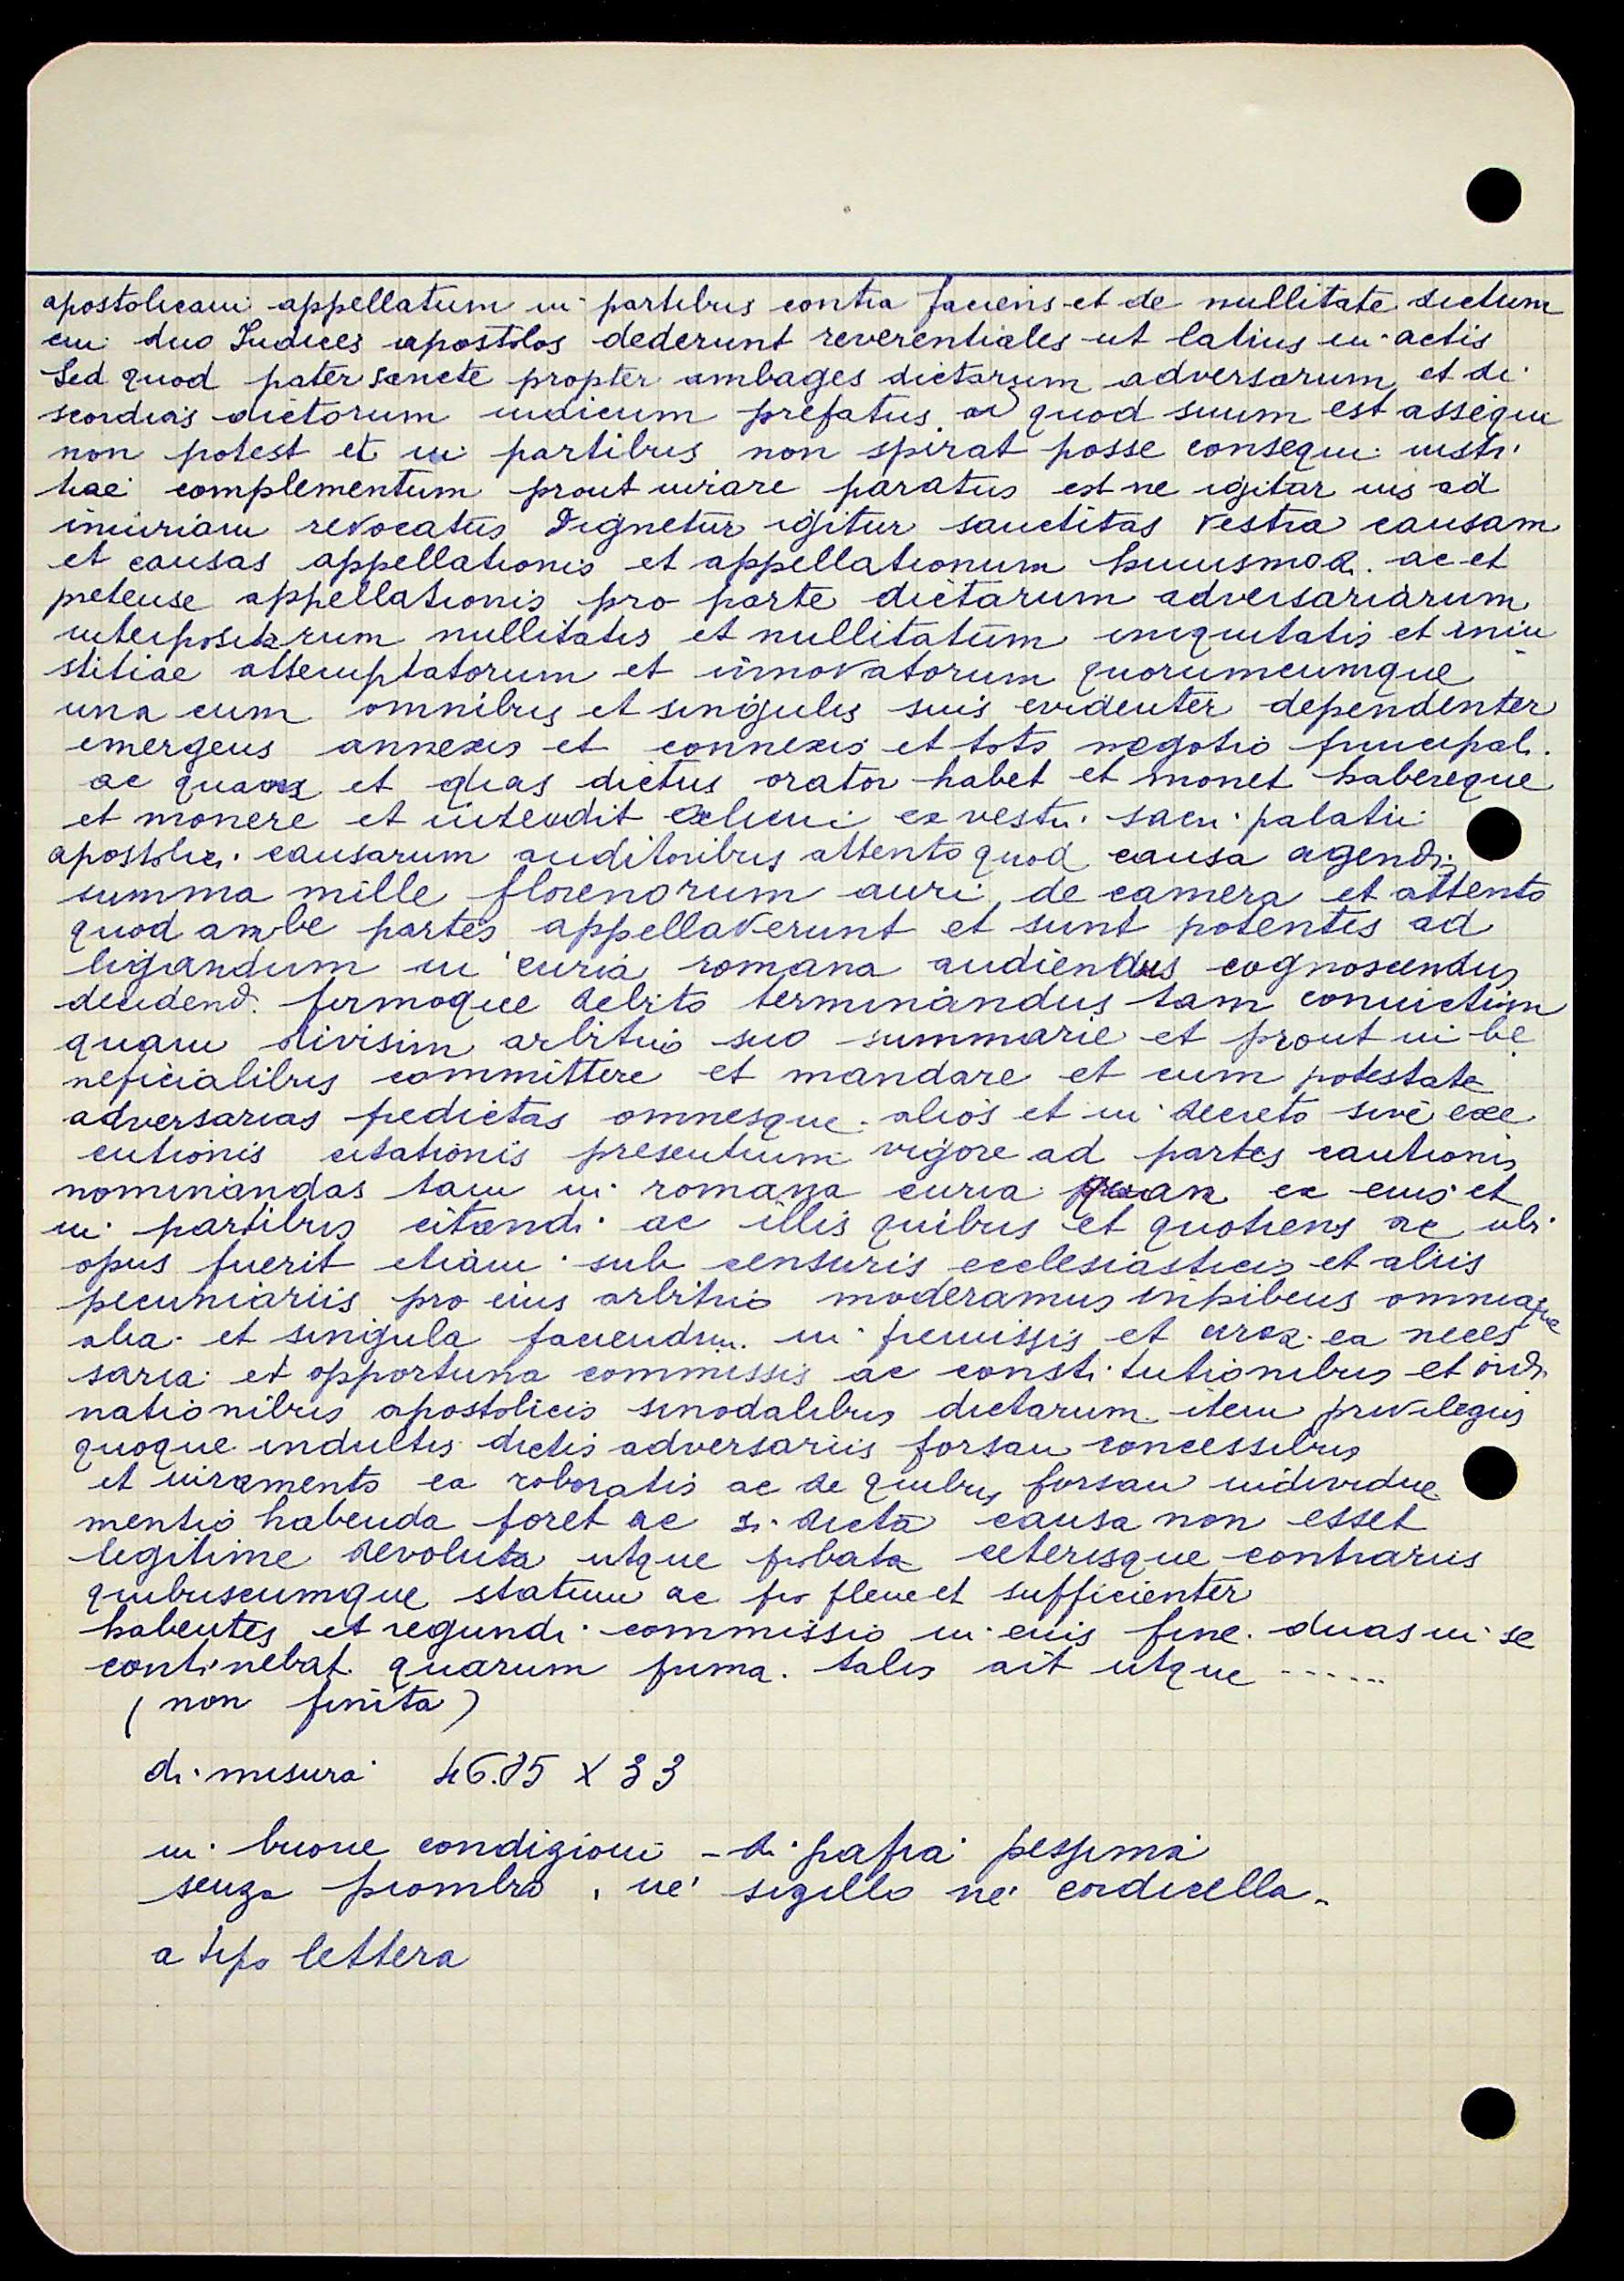 apostolicam appellatum in partibus contra faciens et de nullitate dictum
cui duo Iudices apostolos dederunt reverentiales ut latius in actis
Sed quod pater sancte propter ambages dictarum adversarum et di
scordias dictorum iudicum prefatus or quod suum est assequi
non potest et in partibus non spirat posse consequi iusti
tiae complementum prout iurare paratus est ne igitar ius ad
iniuriam revocatus Dignetur igitur sanctitas vestra causam
et causas appellationis et appellationum huiusmod. ac et
pretense appellationis pro parte dictarum adversariarum
interpositarum nullitatis et nullitatum iniquitatis et iniu
stitiae attemptatorum et innovatorum quorumcumque
una cum omnibus et singulis suis evidenter dependenter
emergens annexis et connexis et toto negotio principal.
ac quam et quas dictus orator habet et monet habereque
et monere et intendit alicui ex vestri sacri palatii
apostolici causarum auditoribus attento quod causa agendi
summa mille florenorum auri de camera et attento
quod ambe partes appellaverunt et sunt potentes ad
ligandum in curia romana audiendus cognoscendus
decidend. firmoque debito terminandus tam coniuctim
quam divisim arbitrio suo summarie et prout in be
neficialibus committere et mandare et cum potestate
adversarias predictas omnesque alios et in decreto sive exe
cutionis citationis presentium vigore ad partes cautionis
nominandas tam in romana curia quam ex eius et
in partibus citandi ac illis quibus et quotiens ac ubi
opus fuerit etiam sub censuris ecclesiasticis et aliis
pecuniariis pro eius arbitrio moderamus inhibens omniaque
alia et singula faciendum in premissis et circa ea neces
saria et opportuna commissis ac constitutionibus et ordi
nationibus apostolicis sinodalibus dictarum item privilegiis
quoque indultis dictis adversariis forsan concessibus
et iuramento ea roboratis ac de quibus forsan individue
mentio habenda foret ac si dicta causa non esset
legitime devoluta utque probata ceterisque contrariis
quibuscumque statum ac pro plene et sufficienter
habentes et regundi commissio in eius fine duas in se
continebat quarum prima tales ait utque ------
(non finita)
di misura 46.85 x 33
in buone condizioni - di grafia pessima
senza piombo, né sigillo né cordicella.
a tipo lettera